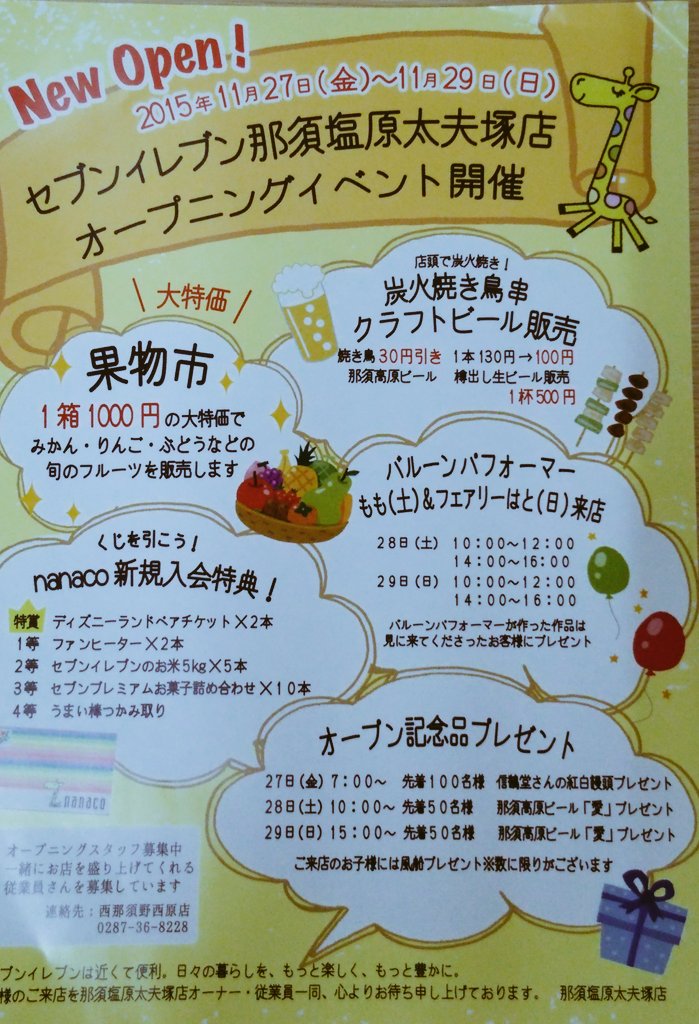 New Open!
2015年11月27日(金)～11月29日(日)
セブンイレブン那須塩原太夫塚店
オープニングイベント開催
大特価
果物市
1箱1000円の大特価で
みかん・りんご・ぶどうなどの
旬のフルーツを販売します
店頭で炭火焼き!
炭火焼き鳥串
クラフトビール販売
焼き鳥30円引き 1本130円→100円
那須高原ビール 樽出し生ビール販売
1杯500円
バルーンパフォーマー
もも(土)&フェアリーはと(日)来店
28日(土) 10:00～12:00
14:00～16:00
29日(日) 10:00～12:00
14:00～16:00
バルーンパフォーマーが作った作品は
見に来てくださったお客様にプレゼント
くじを引こう!
nanaco新規入会特典!
特賞 ディズニーランドペアチケット×2本
1等 ファンヒーター×2本
2等 セブンイレブンのお米5kg×5本
3等 セブンプレミアムお菓子詰め合わせ×10本
4等 うまい棒つかみ取り
nanaco
オープン記念品プレゼント
27日(金) 7:00～ 先着100名様 信鶴堂さんの紅白饅頭プレゼント
28日(土) 10:00～ 先着50名様 那須高原ビール「愛」プレゼント
29日(日) 15:00～ 先着50名様 那須高原ビール「愛」プレゼント
ご来店のお子様には風船プレゼント※数に限りがございます
オープニングスタッフ募集中
一緒にお店を盛り上げてくれる
従業員さんを募集しています
連絡先:西那須野西原店
0287-36-8228
ブンイレブンは近くて便利。日々の暮らしを、もっと楽しく、もっと豊かに。
様のご来店を那須塩原太夫塚店オーナー・従業員一同、心よりお待ち申し上げております。 那須塩原太夫塚店